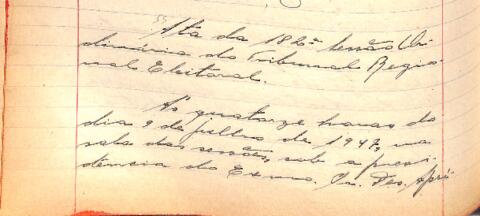 Ata da 182ª sessão Or-
dinária do Tribunal Regio-
nal Eleitoral.
Às quatorze horas do
dia 9 de julho de 1947, na
sala das sessões, sob a presi-
dência do Exmo. Sr. Des. Apri-